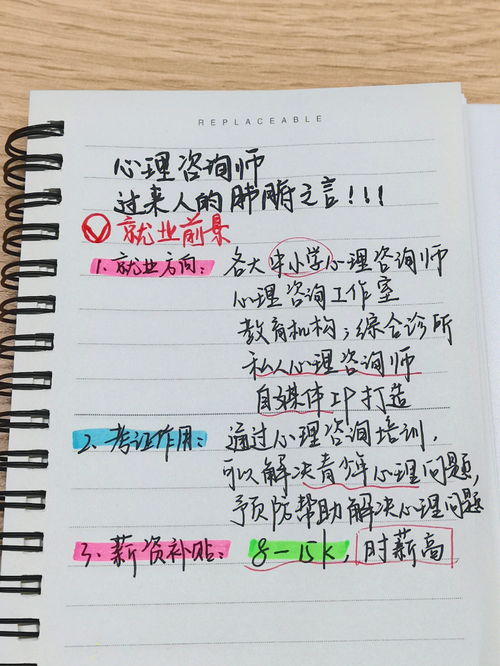 REPLACEABLE
心理咨询师
过来人的肺腑之言!!!
就业前景
1、就业方向: 各大中小学心理咨询师
心理咨询工作室
教育机构;综合诊所
私人心理咨询师
自媒体IP打造
2、考证作用: 通过心理咨询培训,
可以解决青少年心理问题,
予防帮助解决心理问题
3、薪资补贴: 8-15k, 时薪高